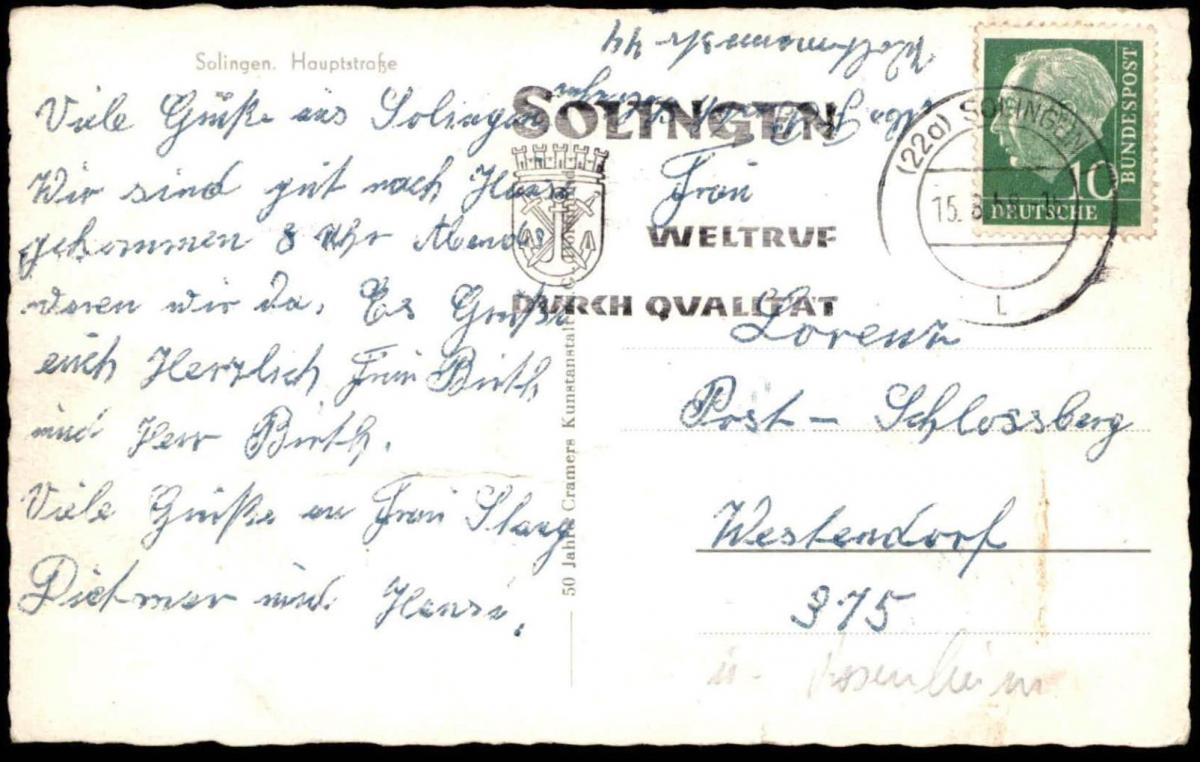 Solingen. Hauptstraße
Viele Grüße aus Solingen
Wir sind gut nach Hause
gekommen 8 Uhr Abends
waren wir da. Es Grüßt
euch Herzlich Frau Birth
und Herr Birth.
Viele Grüße an Frau Stang
Dietmar und Hansi.
50 Jahre Cramers Kunstanstalt
SOLINGEN
WELTRUF
DURCH QUALITÄT
(22a) SOLINGEN
L
10
DEUTSCHE
BUNDESPOST
Frau
Lorenz
Post - Schlossberg
Westendorf
375
ü. Rosenheim
44